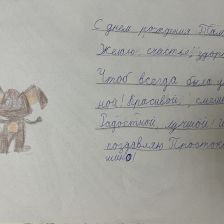 С днём рождения Там
Желаю, счастье, здоро
Чтоб всегда была у
ной! Красивой, смел
Радостной, лучшой!
поздравляю Просток
шино!